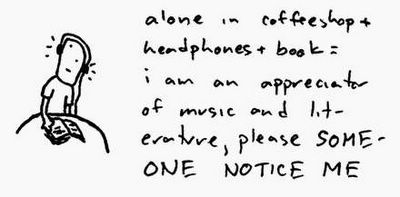 alone in coffeeshop +
headphones + book =
i am an appreciator
of music and lit-
erature, please SOME-
ONE NOTICE ME